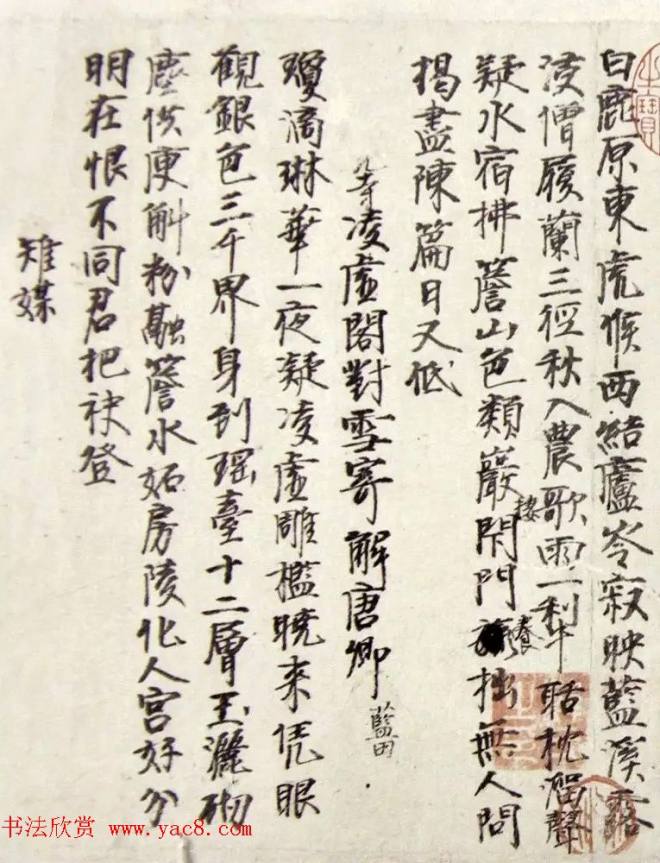 白鹿原東虎候西結廬岑寂映藍溪露
浸僧履蘭三徑秋入農歌雨一犁聒枕溜聲
疑水宿拂簷山色類巖棲閑門養拙無人問
揭盡陳篇日又低
凌虛閣對雪寄解唐卿藍田
瓊滴琳華一夜凝凌虛雕檻曉來凭眼
觀銀色三千界身到瑤臺十二層玉灑砌
塵供庾斛粉融簷水妬房陵化人宮好分
明在恨不同君把袂登
雉媒
书法欣赏 www.yac8.com